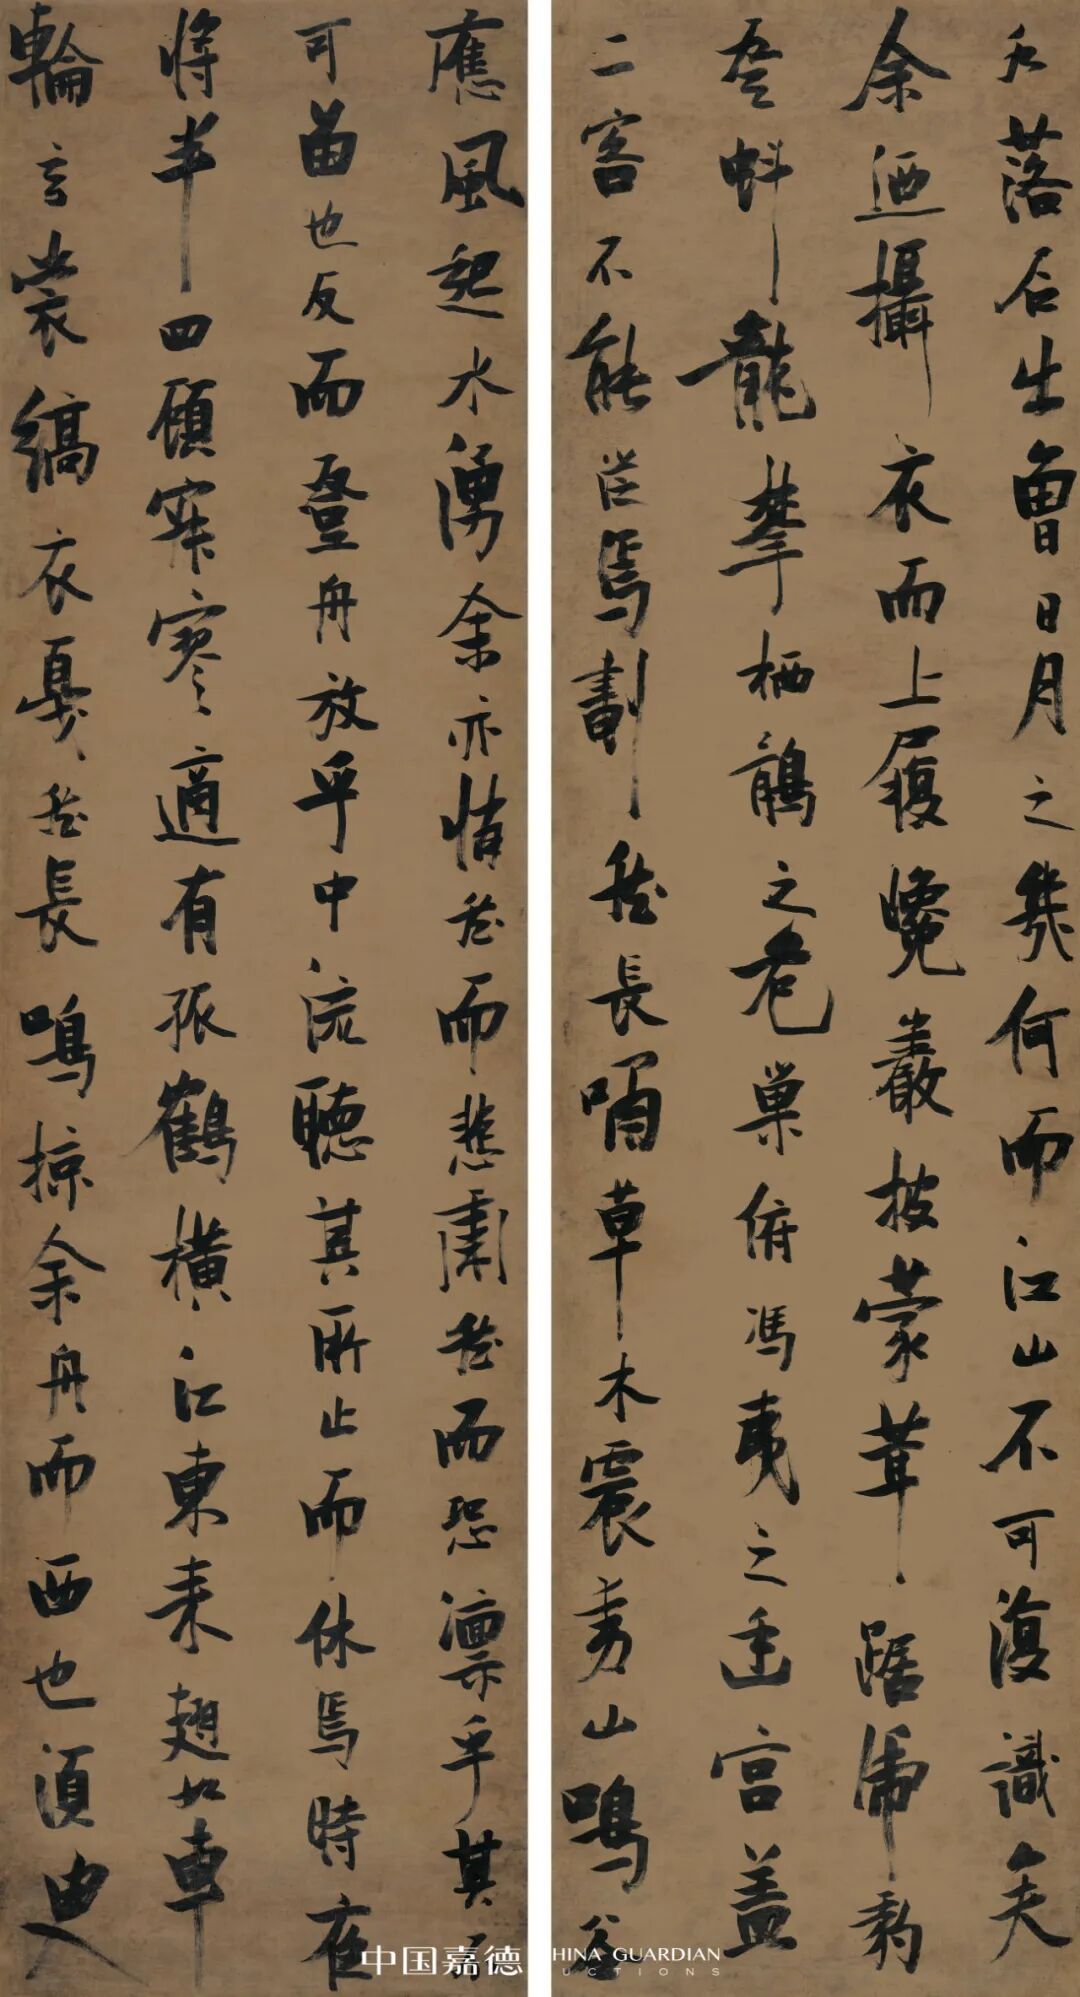 水落石出曾日月之幾何而江山不可復識矣
余迺攝衣而上履巉巖披蒙茸踞虎豹
登虯龍攀栖鶻之危巢俯馮夷之幽宮盖
二客不能從焉劃然長嘯草木震動山鳴谷
應風起水湧余亦悄然而悲肅然而恐凛乎其不
可留也反而登舟放乎中流聽其所止而休焉時夜
將半四顧寂寥適有孤鶴橫江東来翅如車
輪玄裳縞衣戛然長鳴掠余舟而西也須臾
中国嘉德
HINA GUARDIAN
UCTIONS